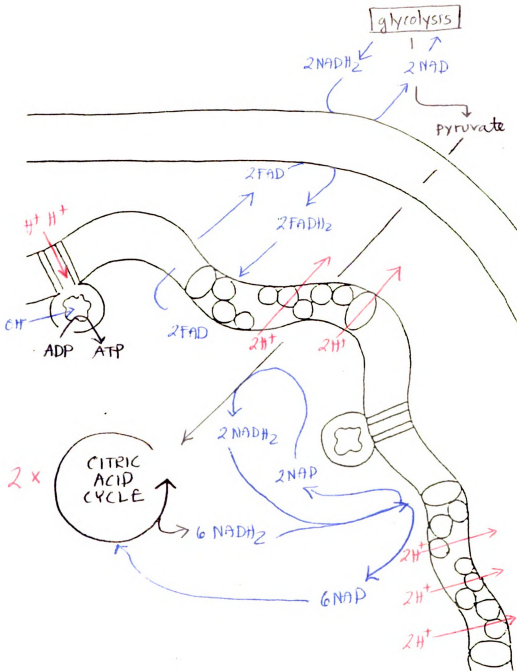 glycolysis
2NADH₂
2 NAD
pyruvate
2FAD
2FADH₂
H⁺ H⁺
ADP
ATP
2FAD
2H⁺
2H⁺
2NADH₂
2NAD
2 ×
CITRIC
ACID
CYCLE
6 NADH₂
6NAD
2H⁺
2H⁺
2H⁺